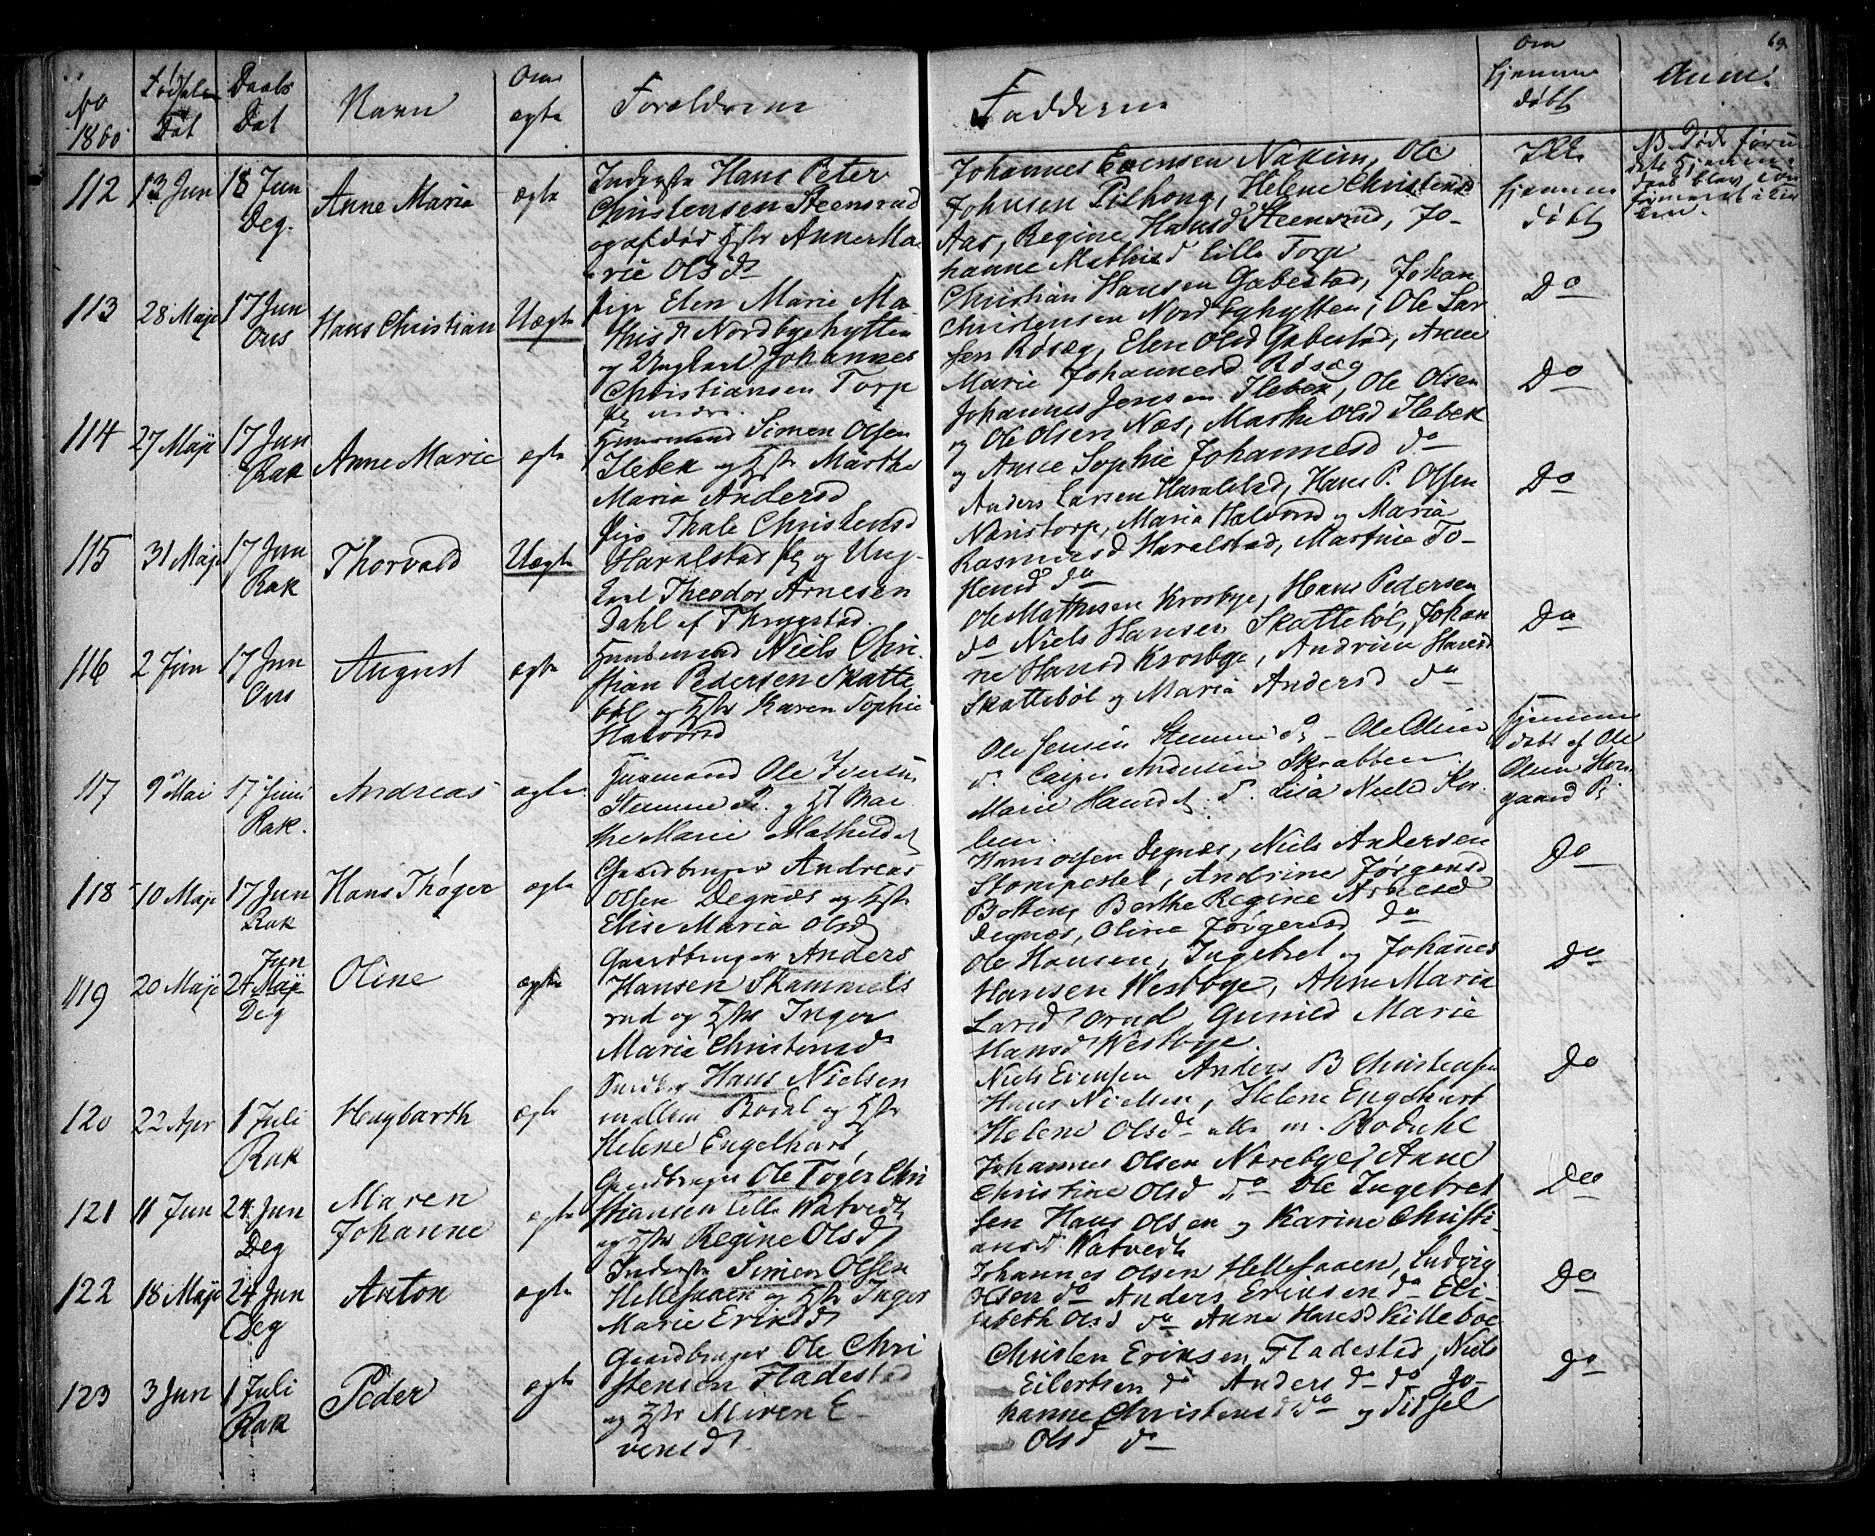 69.
No 1860 Fødsels Dat Daabs Dat Navn Om ægte Forældrene Faddere Om hjemme døbt Anm:
112 13 Jun 18 Jun Deg. Anne Maria ægte
Inderste Hans Peter
Christensen Steensrud
og afdød Hstr Anne Ma
rie Olsd
Johannes Evensen Nakim, Ole
Johnsen Pilhong, Helene Christensd
Aas, Regine Hansd Steensrud, Jo-
hanne Mathisd Lille Torp
Ikke
hjemme
døbt
NB Død føru
113 28 Maji 17 Jun Ous Hans Christian Uægte
Pige Elen Marie Ma
thisd Nordbyehytten
og Ungkarl Johannes
Christiansen Torp
Christian Hansen Gabestad, Johan
Christensen Nordbyhytten, Ole Lar
sen Røsæg, Elen Olsd Gabestad, Anne
Marie Johannesd Røsæg
Do
114 27 Maji 17 Jun Rak Anne Marie ægte
Huusmand Simen Olsen
Ilebek og Hstr Marthe
Maria Andersd
Johannes Jensen Ilebek, Ole Olsen
og Ole Olsen Næs, Marthe Olsd Ilebek
og Anne Sophie Johannesd do
Do
115 31 Maji 17 Jun Rak Thorvald Uægte
Pige Thale Christensd
Haralstad og Ung-
karl Theodor Arnesen
Dahl af Thrygstad.
Anders Larsen Haralstad, Hans P. Olsen
Navistorp, Maria Halvorsd og Maria
Rasmusd Haralstad, Martine To-
do
Do
116 2 Jun 17 Jun Ous August ægte
Huusmand Niels Chri
stian Pedersen Skatte
bøl og Hstr Karen Sophie
Halvorsd
Ole Mathisen Krosbye, Hans Pedersen
do Niels Hansen Skattebøl, Johan
ne Hansd Krosbye, Andrine Hansd
Skattebøl og Maria Andersd do
Do
117 9 Mai 17 Juni Rak. Andreas ægte
Huusmand Ole Iversen
Stemme og Hst Mar
the Marie Mathisd
Ole Jensen Stemme - Ole Olsen
d. Casper Andersen Skrabben
Marie Hansd d. Lisa Nielsd Kor
Hjemme
døbt af Ole
Olsen Hon
gaard
118 10 Maji 17 Jun Rak Hans Thøger ægte
Gaardbruger Andreas
Olsen Degnæs og Hstr
Elise Maria Olsd
Hans Olsen Degnæs, Niels Andersen
Stompestel, Andrine Jørgensd
Botten, Berthe Regine Arnesd
Degnæs, Oline Jørgensd do
Do
119 20 Maji 24 Jun Deg Oline ægte
Gaardbruger Anders
Hansen Skammels
rud og Hstr Inger
Maria Christensd
Ole Hansen, Ingebret og Johannes
Hansen Westbye, Anne Maria
Larsd Orud, Gunild Marie
Hansd Westbye
Do
120 22 Apr 1 Juli Rak Haybarth ægte
Hans Nielsen
mellem Bodal og Hstr
Helene Engelhart
Niels Evensen Anders B Christensen
Hans Nielsen, Helene Engelhart
Helene Olsd alle m. Bodahl
Do
121 11 Jun 24 Jun Deg Maren Johanne ægte
Gaardbruger Ole Toger Chri
stiansen Lille Watvedt
og Hstr Regine Olsd
Johannes Olsen Norebye, Anne
Christine Olsd do Ole Ingebret
sen Hans Olsen og Karine Christi
ansd Watvedt
Do
122 18 Maji 24 Jun Deg Anton ægte
Inderste Simen Olsen
Hellesaaen og Hstr Inger
Marie Eriksd
Johannes Olsen Hellesaaen, Ludvig
Olsen do Anders Eriksen do Eli-
sabeth Olsd do Anne Hansd Killeboe
Do
123 3 Jun 1 Juli Rak Peder ægte
Gaardbruger Ole Chri
stensen Fladestad
og Hstr Maren E-
vensd
Christen Eriksen Fladestad, Niels
Eilertsen do Anders do do Jo-
hanne Christensd do og Sissel
Olsd do
Do